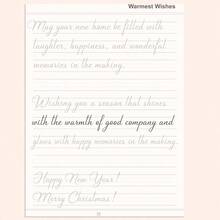 Warmest Wishes
May your new home be filled with
laughter, happiness, and wonderful
memories in the making.
Wishing you a season that shines
with the warmth of good company and
glows with happy memories in the making.
Happy New Year!
Merry Christmas!